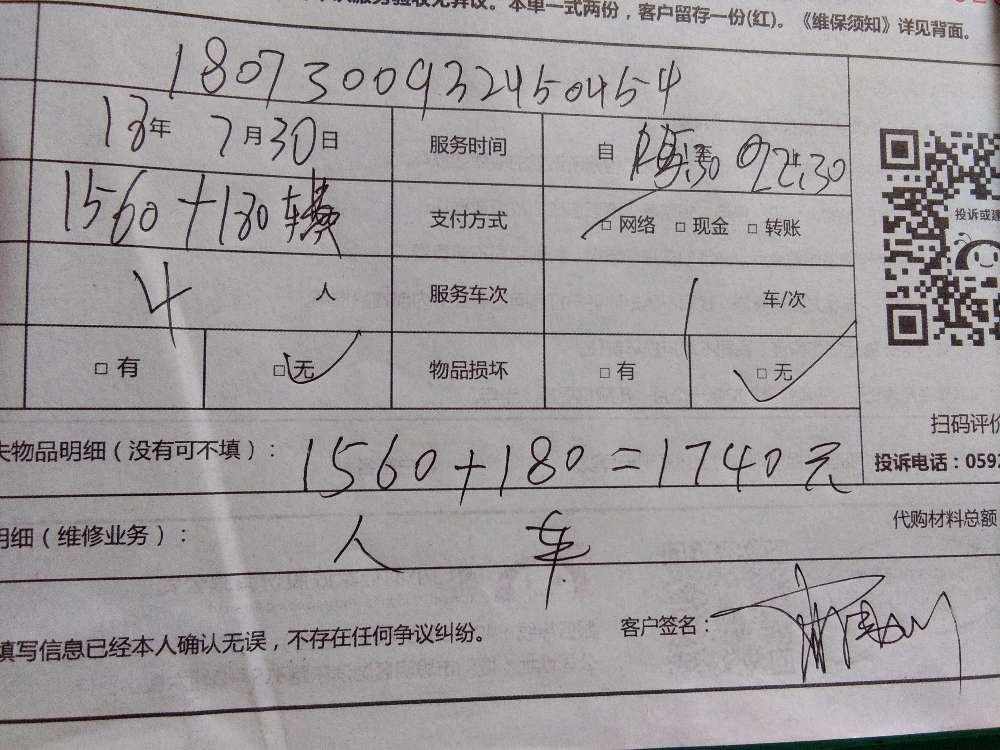 服务验收无异议。本单一式两份，客户留存一份(红)。《维保须知》详见背面。
180730093245045​4
18年 7月30日 服务时间 自 22:30
1560+180车费 支付方式 □ 网络 □ 现金 □ 转账
投诉或建
4 人 服务车次 1 车/次
□ 有 □ 无 物品损坏 □ 有 □ 无
扫码评价
失物品明细（没有可不填）： 1560+180=1740元
投诉电话：0592
明细（维修业务）： 人 车
代购材料总额
填写信息已经本人确认无误，不存在任何争议纠纷。 客户签名：